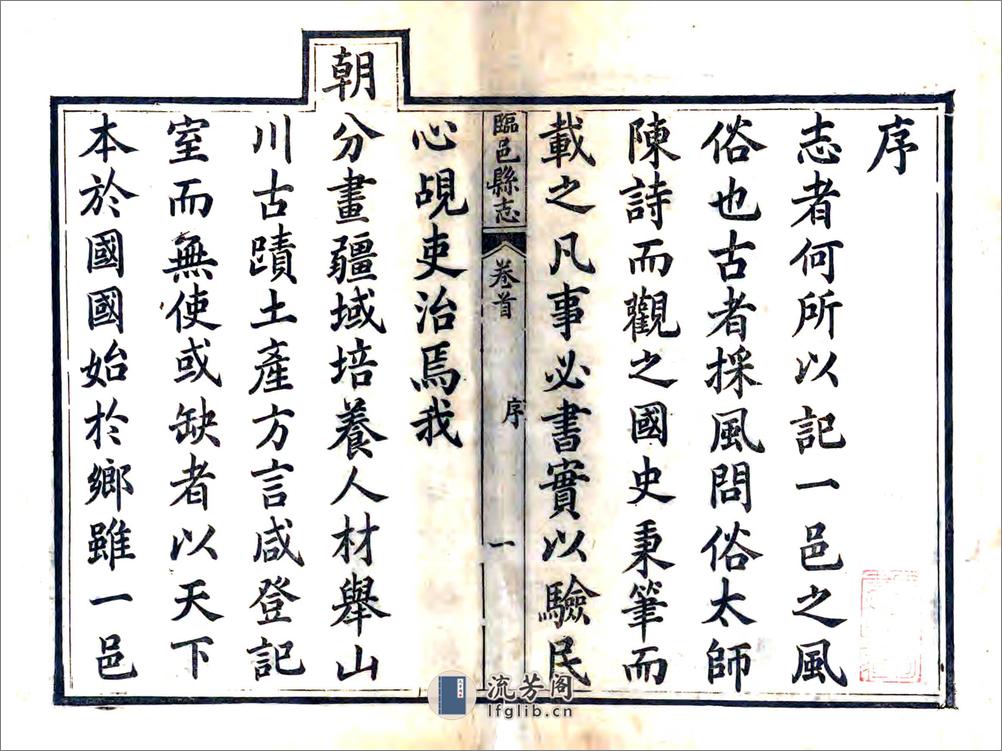 序
志者何所以記一邑之風
俗也古者採風問俗太師
陳詩而觀之國史秉筆而
載之凡事必書實以驗民
臨邑縣志
卷首
序
一
心覘吏治焉我
朝
分畫疆域培養人材舉山
川古蹟土產方言咸登記
室而無使或缺者以天下
本於國國始於鄉雖一邑
流芳阁
lfglib.cn